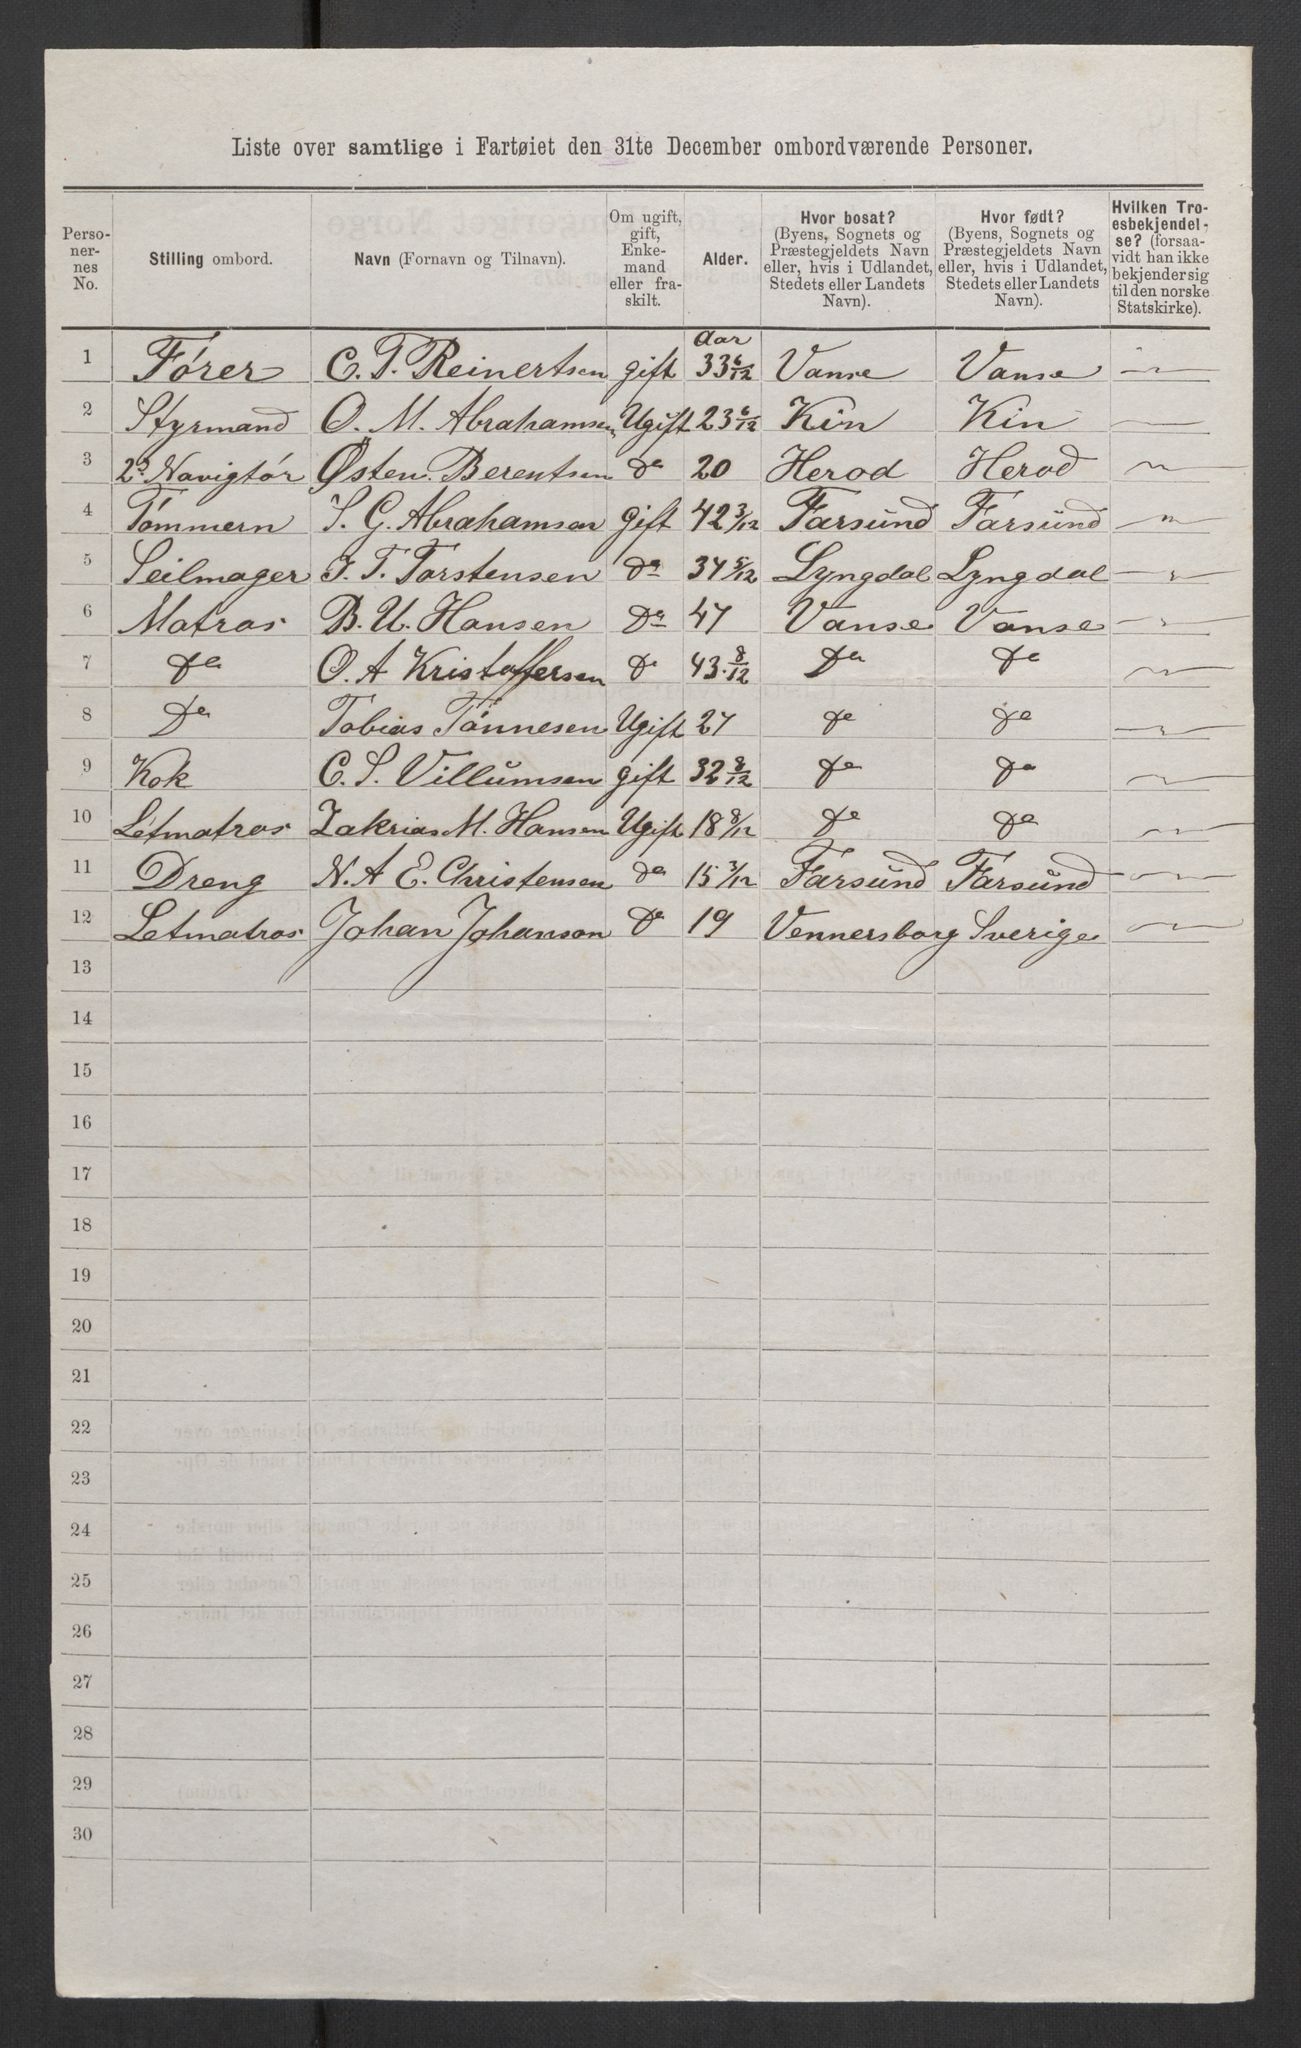 Liste over samtlige i Fartøiet den 31te December ombordværende Personer.
Perso-
ner-
nes
No.
Stilling ombord.
Navn (Fornavn og Tilnavn).
Om ugift,
gift,
Enke-
mand
eller fra-
skilt.
Alder.
Hvor bosat?
(Byens, Sognets og
Præstegjeldets Navn
eller, hvis i Udlandet,
Stedets eller Landets
Navn).
Hvor født?
(Byens, Sognets og
Præstegjeldets Navn
eller, hvis i Udlandet,
Stedets eller Landets
Navn).
Hvilken Tro-
esbekjendel-
se? (forsaa-
vidt han ikke
bekjender sig
til den norske
Statskirke).
Aar
1 Fører C. T. Reinertsen gift 33 6/12 Vanse Vanse
2 Styrmand O. M. Abrahamsen Ugift 23 6/12 Kin Kin
3 2n Navigtør Østen Berentsen Do 20 Herod Herod
4 Tømmern S. G. Abrahamsen gift 42 3/12 Farsund Farsund
5 Seilmager J. T. Torstensen Do 34 5/12 Lyngdal Lyngdal
6 Matros B. U. Hansen Do 47 Vanse Vanse
7 Do O. A Kristoffersen Do 43 8/12 Do Do
8 Do Tobias Tønnesen Ugift 27 Do Do
9 Kok C. S. Villumsen gift 32 8/12 Do Do
10 Letmatros Zakrias M. Hansen Ugift 18 8/12 Do Do
11 Dreng N. A E. Christensen Do 15 3/12 Farsund Farsund
12 Letmatros Johan Johanson Do 19 Vennersborg Sverige
13
14
15
16
17
18
19
20
21
22
23
24
25
26
27
28
29
30